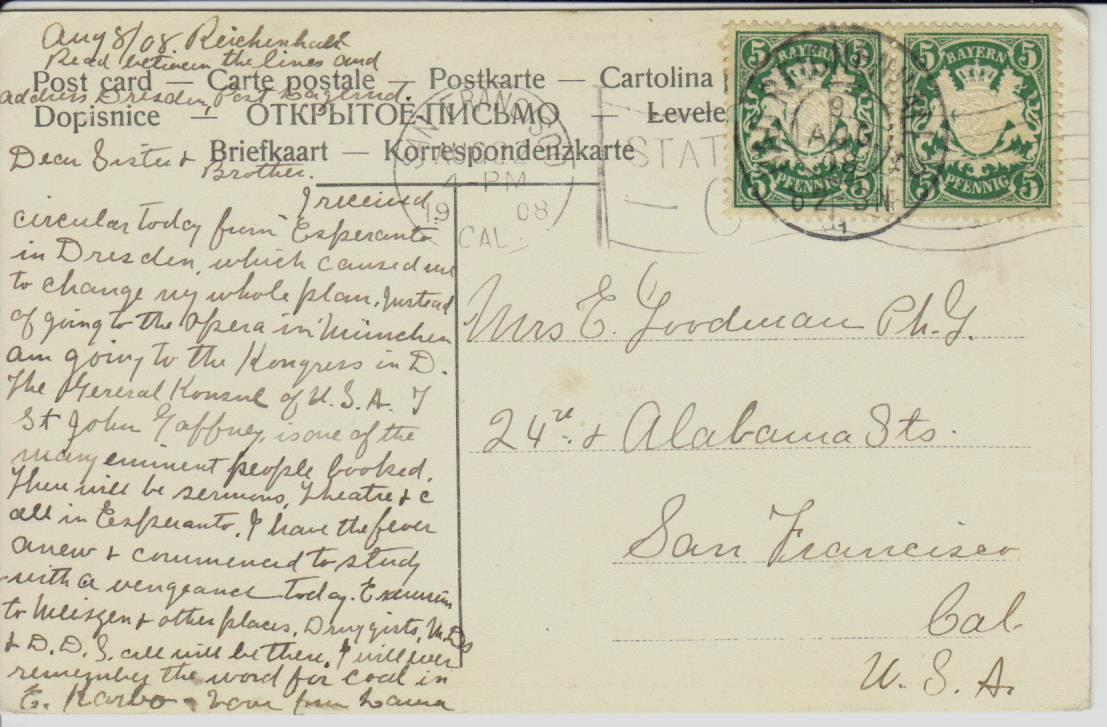 Aug 8/08. Reichenhall
Read between the lines and
Post card — Carte postale — Postkarte — Cartolina
address Dresden, Post Lagernd.
Dopisnice — ОТКРЫТОЕ ПИСЬМО — Levele
Briefkaart — Korrespondenzkarte
Dear Sister &
Brother.
I received
circular today from Esperanto
in Dresden, which caused me
to change my whole plan. Instead
of going to the Opera in München
am going to the Kongress in D.
The General Konsul of U.S.A. T
St John Gaffney, is one of the
many eminent people booked.
There will be sermons, Theatre & c
all in Esperanto. I have the fever
anew & commenced to study
with a vengeance today.
to Meiszen & other places. Druggists, M.Ds
& D.D.S. all will be there. I will
remember the word for coal in
E. Karbo - Love from Laura
SAN FRANCISCO
AUG
4-PM
19 08
CAL.
STAT
5 5
BAYERN
5 PFENNIG 5
5 5
BAYERN
5 PFENNIG 5
9
AUG
08
Mrs E. Goodman Ph.G.
24th & Alabama Sts.
San Francisco
Cal
U.S.A.